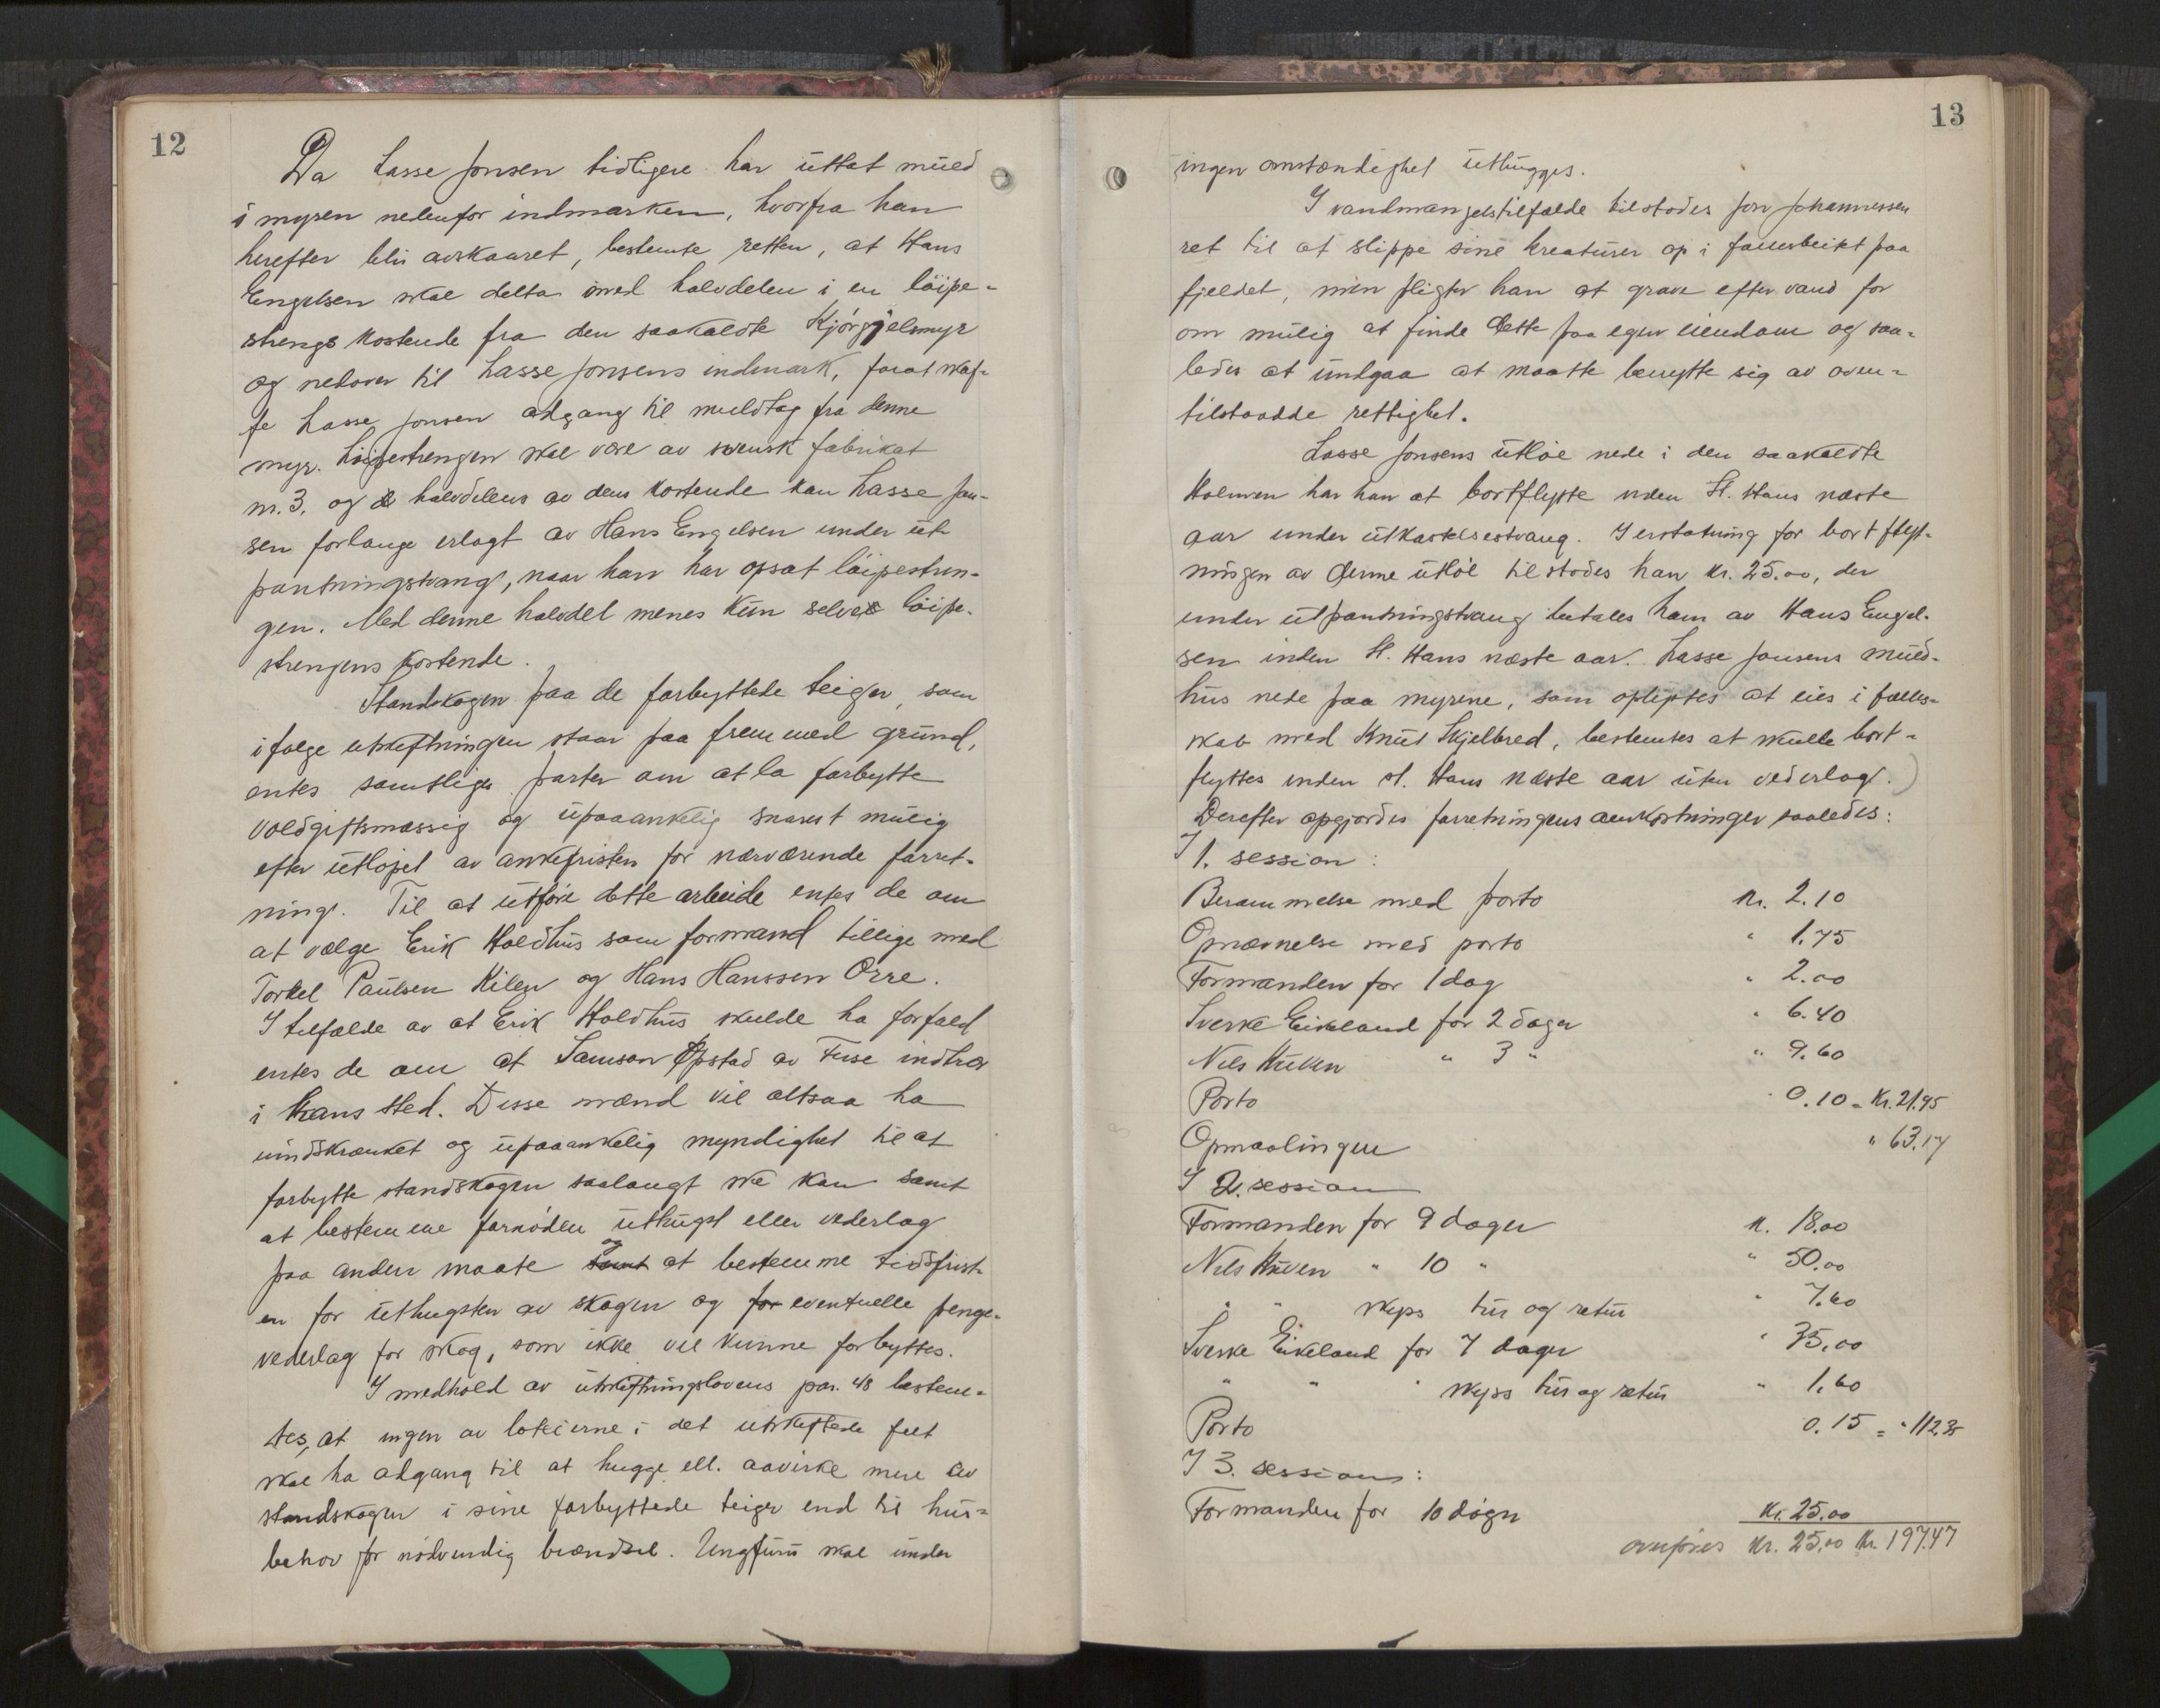 12
Da Lasse Jonsen tidligere har uttat muld
i myren nedenfor indmarken, hvorfra han
herefter blir avskaaret, bestemte retten, at Hans
Engelsen skal delta med halvdelen i en löipe-
strengs kostende fra den saakaldte Kjörgjelsmyr
og nedover til Lasse Jonsens indmark, forat skaf-
fe Lasse Jonsen adgang til muldtag fra denne
myr. Löipestrengen skal være av svensk fabrikat
nr. 3. og halvdelens av dens kostende kan Lasse Jon-
sen forlange erlagt av Hans Engelsen under ut-
pantningstvang, naar han har opsat löipestren-
gen. Med denne halvdel menes kun selve löipe-
strengens kostende.
Standskogen paa de forbyttede teiger, som
ifölge utskiftningen staar paa fremmed grund,
entes samtlige parter om at la forbytte
voldgiftsmæssig og upaaankelig snarest mulig
efter utlöpet av ankefristen for nærværende forret-
ning. Til at utföre dette arbeide entes de om
at vælge Erik Holdhus som formand tillige med
Torkel Paulsen Kilen og Hans Hanssen Orre.
I tilfælde av at Erik Holdhus skulde ha forfald
entes de om at Samson Opstad av Fuse indtrær
i hans sted. Disse mænd vil altsaa ha
uindskrænket og upaaankelig myndighet til at
forbytte standskogen saalangt ske kan samt
at bestemme fornöden uthugst eller vederlag
paa anden maate samt og at bestemme tidsfrist-
en for uthugsten av skogen og for eventuelle penge-
vederlag for skog, som ikke vil kunne forbyttes.
I medhold av utskiftningslovens par. 48 bestem-
tes, at ingen av lodeierne i det utskiftede felt
skal ha adgang til at hugge ell. aavirke mere av
standskogen i sine forbyttede teiger end til hus-
behov for nödvendig brændsel. Ungfuru skal under
13
ingen omstændighet uthugges.
I vandmangelstilfælde tilstodes Jon Johannessen
ret til at slippe sine kreaturer op i fællesbeitet paa
fjeldet, men pligter han at grave efter vand for
om mulig at finde dette paa egen eiendom og saa-
ledes at undgaa at maatte benytte sig av oven-
tilstaadde rettighet.
Lasse Jonsens utlöe nede i den saakaldte
Holmen har han at bortflytte inden St. Hans næste
aar under utkastelsestvang. I erstatning for bortflyt-
ningen av denne utlöe tilstodes han kr. 25.00, der
under utpantningstvang betales ham av Hans Engel-
sen inden St. Hans næste aar. Lasse Jonsens muld-
hus nede paa myrene, som oplystes at eies i fælles-
skab med Knut Skjelbred, bestemtes at skulle bort-
flyttes inden St. Hans næste aar uten vederlag.)
Derefter opgjordes forretningens omkostninger saaledes:
I 1. session:
Berammelse med porto kr. 2.10
Opnævnelse med porto " 1.75
Formanden for 1 dag " 2.00
Sverke Eikeland for 2 dager " 6.40
Nils " 3 " " 9.60
Porto " 0.10 = Kr. 21.95
Opmaalingen " 63.17
I 2. session
Formanden for 9 dager kr. 18.00
Nils " 10 " " 50.00
" " skyss tur og retur " 7.60
Sverke Eikeland for 7 dager " 35.00
" " " skyss tur og retur " 1.60
Porto 0.15 = " 112.35
I 3. session:
Formanden for 10 dögn Kr. 25.00
overföres Kr. 25.00 Kr. 197.47